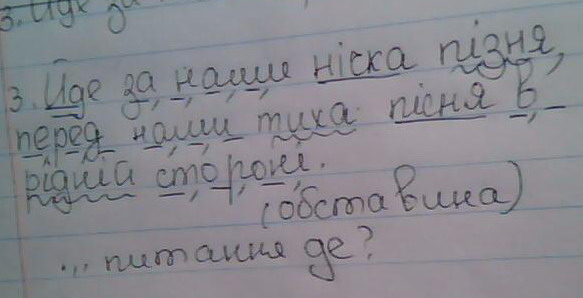 3. Йде за нами ніска пізня,
перед нами тиха пісня в
рідній стороні.
(обставина)
... питання де?